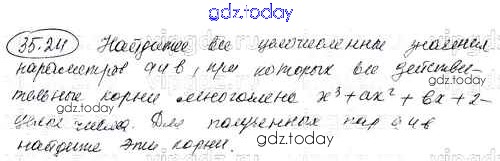 gdz.today
35.24 Найдите все целочисленные значения
параметров a и b, при которых все действи-
gdz.today
тельные корни многочлена x³+ax²+bx+2-
целые числа. Для полученных пар a и b
gdz.today
найдите эти корни.
gdz.today